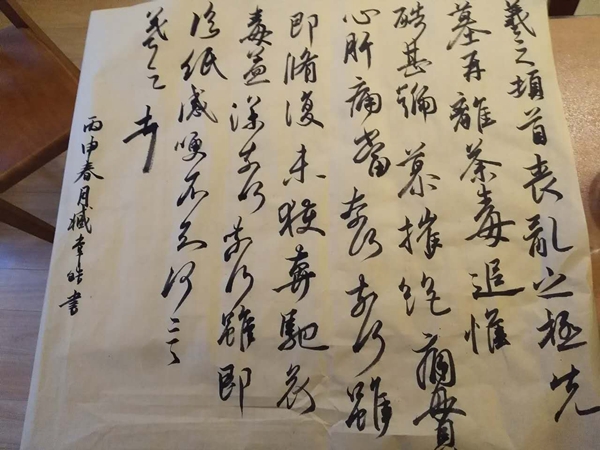 羲之頓首喪亂之極先
墓再離荼毒追惟
酷甚號慕摧絕痛貫
心肝痛當奈何奈何雖
即脩復未獲奔馳哀
毒益深奈何奈何雖即
臨紙感哽不知何言
羲之頓首
丙申春月臧書